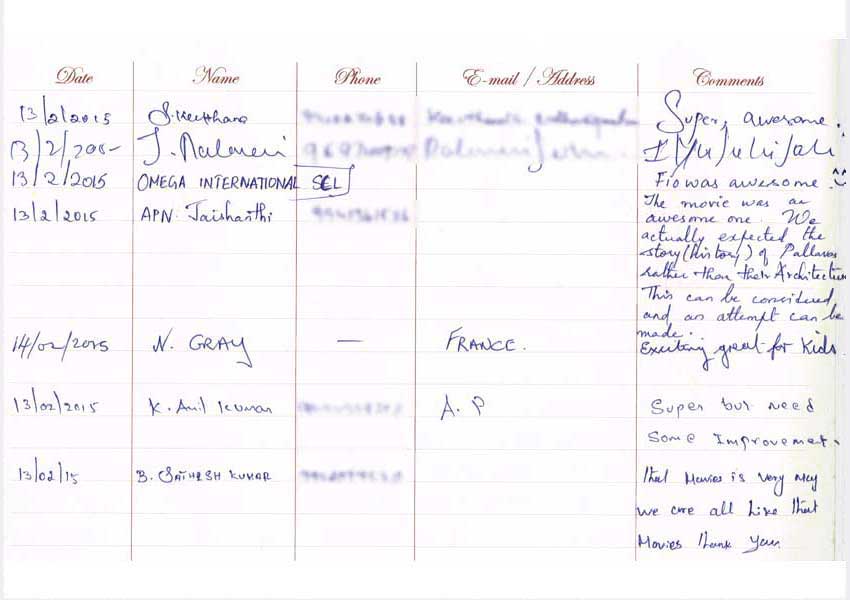 Date Name Phone E-mail / Address Comments
13/2/2015 S. Keerthana Super, awesome.
13/2/2015
13/2/2015 OMEGA INTERNATIONAL SCL Fio was awesome.
13/2/2015 APN. Jaisharthi The movie was an
awesome one. We
actually expected the
story (History) of Pallavas
rather than their Architecture
This can be considered
and an attempt can be
made.
14/02/2015 N. GRAY — FRANCE. Exciting great for Kids
13/02/2015 K. Anil Kumar A. P Super but need
Some Improvement.
13/02/15 B. SATHISH KUMAR that Movies is very
we are all Like that
Movies thank you